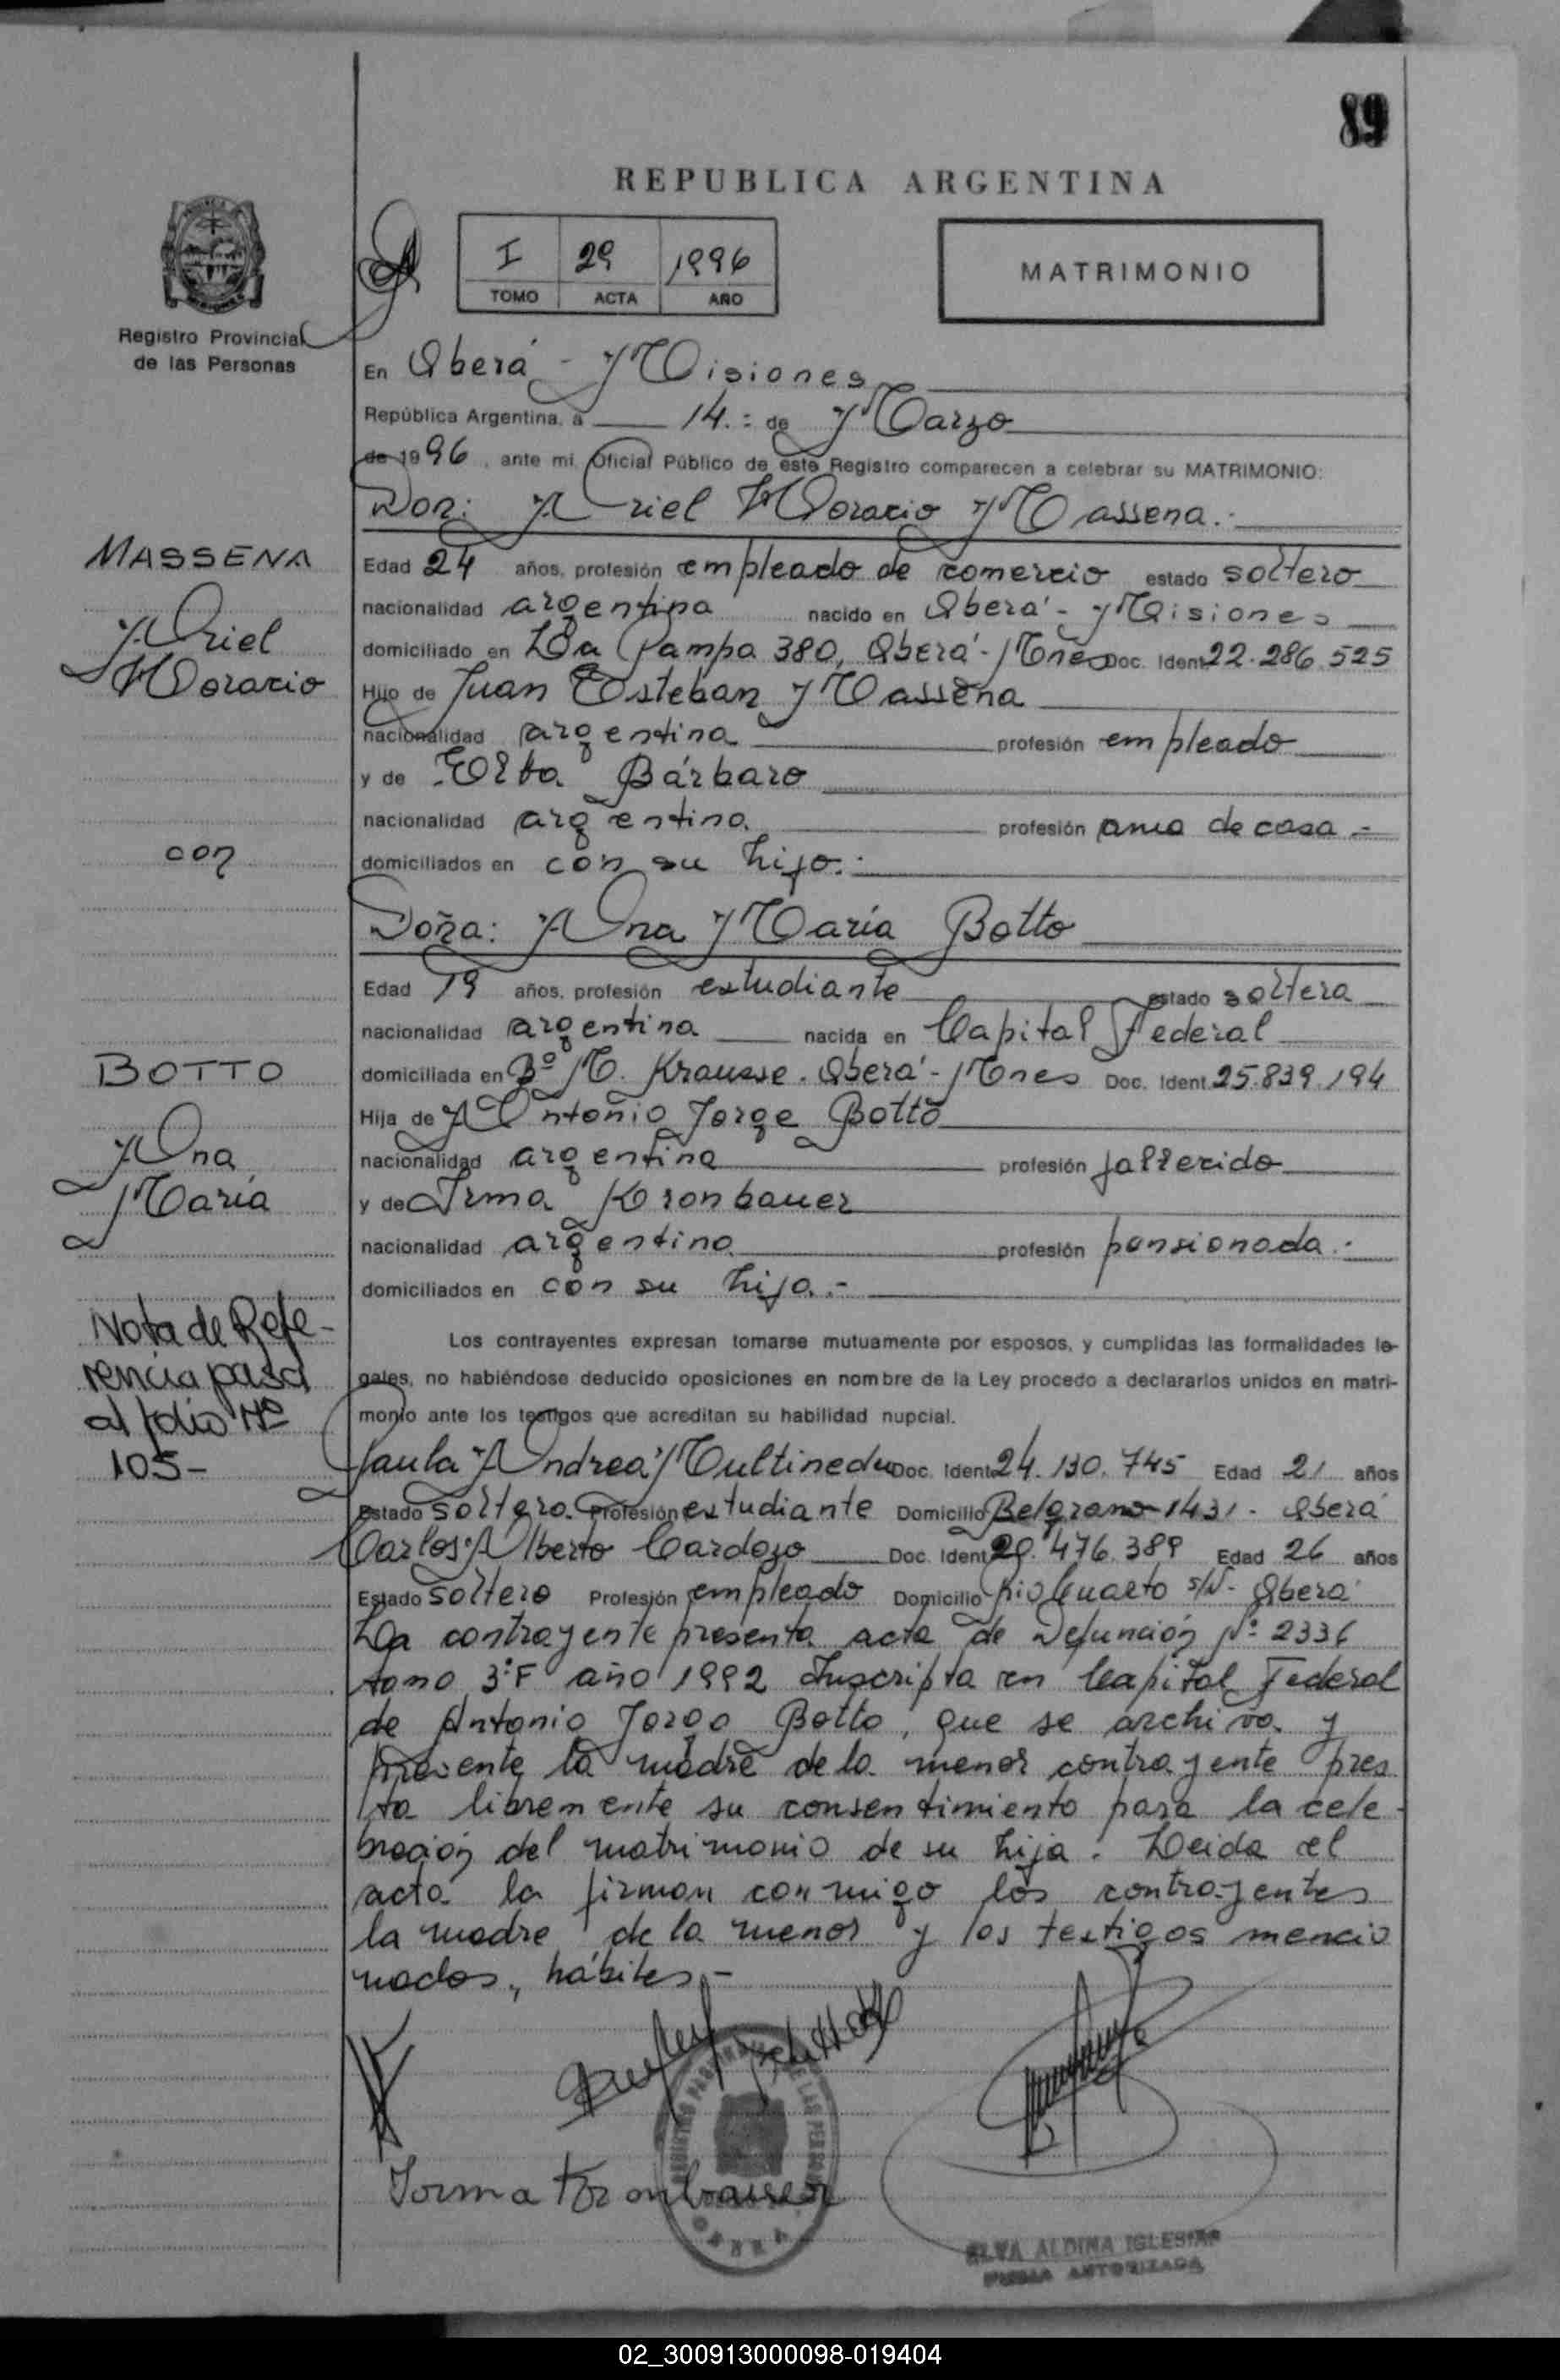 89
REPUBLICA ARGENTINA
I 29 1996
TOMO ACTA AÑO
MATRIMONIO
Registro Provincial
de las Personas
En Oberá - Misiones
República Argentina, a 14.- de Marzo
de 1996, ante mi, Oficial Público de este Registro comparecen a celebrar su MATRIMONIO:
Don: Ariel Horacio Massena.-
MASSENA
Ariel
Horacio
Edad 24 años, profesión empleado de comercio estado soltero
nacionalidad argentina nacido en Oberá - Misiones
domiciliado en La Pampa 380, Oberá - Mnes Doc. Ident. 22.286.525
Hijo de Juan Esteban Massena
nacionalidad argentina profesión empleado
y de Elba Bárbaro
nacionalidad argentina profesión ama de casa -
con
domiciliados en con su hijo.-
Doña: Ana María Botto
Edad 19 años, profesión estudiante estado soltera
nacionalidad argentina nacida en Capital Federal
BOTTO
Ana
María
domiciliada en Bº M. Krausse. Oberá - Mnes Doc. Ident. 25.839.194
Hija de Antonio Jorge Botto
nacionalidad argentina profesión fallecido
y de Irma Kronbauer
nacionalidad argentina profesión pensionada.-
domiciliados en con su hija.-
Nota de Refe-
rencia pasa
al folio Nº
105-
Los contrayentes expresan tomarse mutuamente por esposos, y cumplidas las formalidades le-
gales, no habiéndose deducido oposiciones en nombre de la Ley procedo a declararlos unidos en matri-
monio ante los testigos que acreditan su habilidad nupcial.
Paula Andrea Doc. Ident. 24.130.745 Edad 21 años
Estado soltera Profesión estudiante Domicilio Belgrano 1431 - Oberá
Carlos Alberto Cardozo Doc. Ident. 20.476.389 Edad 26 años
Estado soltero Profesión empleado Domicilio Rio Cuarto s/N - Oberá
La contrayente presenta acta de Defunción Nº 2336
tomo 3ºF año 1992 Inscripta en Capital Federal
de Antonio Jorge Botto, que se archiva. y
presente la madre de la menor contrayente pres
ta libremente su consentimiento para la cele-
bración del matrimonio de su hija. Leida el
acta la firman conmigo los contrayentes
la madre de la menor y los testigos mencio
nados, hábiles.-
Irma Kronbauer
ELVA ALDINA IGLESIAS
FIRMA AUTORIZADA
02_300913000098-019404